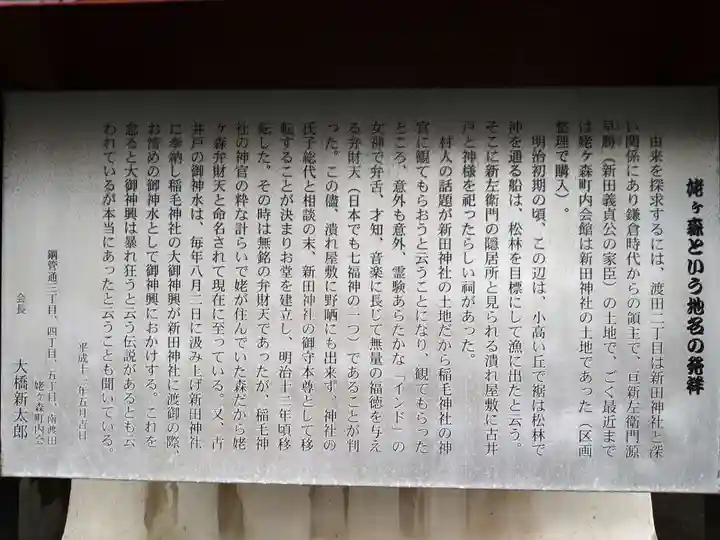 姥ヶ森という地名の発祥
由来を探求するには、渡田二丁目は新田神社と深
い関係にあり鎌倉時代からの領主で、亘新左衛門源
早勝（新田義貞公の家臣）の土地で、ごく最近まで
は姥ヶ森町内会館は新田神社の土地であった（区画
整理で購入）。
明治初期の頃、この辺は、小高い丘で裾は松林で
沖を通る船は、松林を目標にして漁に出たと云う。
そこに新左衛門の隠居所と見られる潰れ屋敷に古井
戸と神様を祀ったらしい祠があった。
村人の話題が新田神社の土地だから稲毛神社の神
官に観てもらおうと云うことになり、観てもらった
ところ、意外も意外、霊験あらたかな「インド」の
女神で弁舌、才知、音楽に長じて無量の福徳を与え
る弁財天（日本でも七福神の一つ）であることが判
った。この儘、潰れ屋敷に野晒にも出来ず、神社の
氏子総代と相談の末、新田神社の御守本尊として移
転することが決まりお堂を建立し、明治十三年頃移
転した。その時は無銘の弁財天であったが、稲毛神
社の神官の粋な計らいで姥が住んでいた森だから姥
ヶ森弁財天と命名されて現在に至っている。又、古
井戸の御神水は、毎年八月二日に汲み上げ新田神社
に奉納し稲毛神社の大御神輿が新田神社に渡御の際、
お清めの御神水として御神輿におかけする。これを
怠ると大御神輿は暴れ狂うと云う伝説があるとも云
われているが本当にあったと云うことも聞いている。
平成十二年五月吉日
鋼管通三丁目、四丁目、五丁目、南渡田
姥ヶ森町内会
会長 大橋新太郎